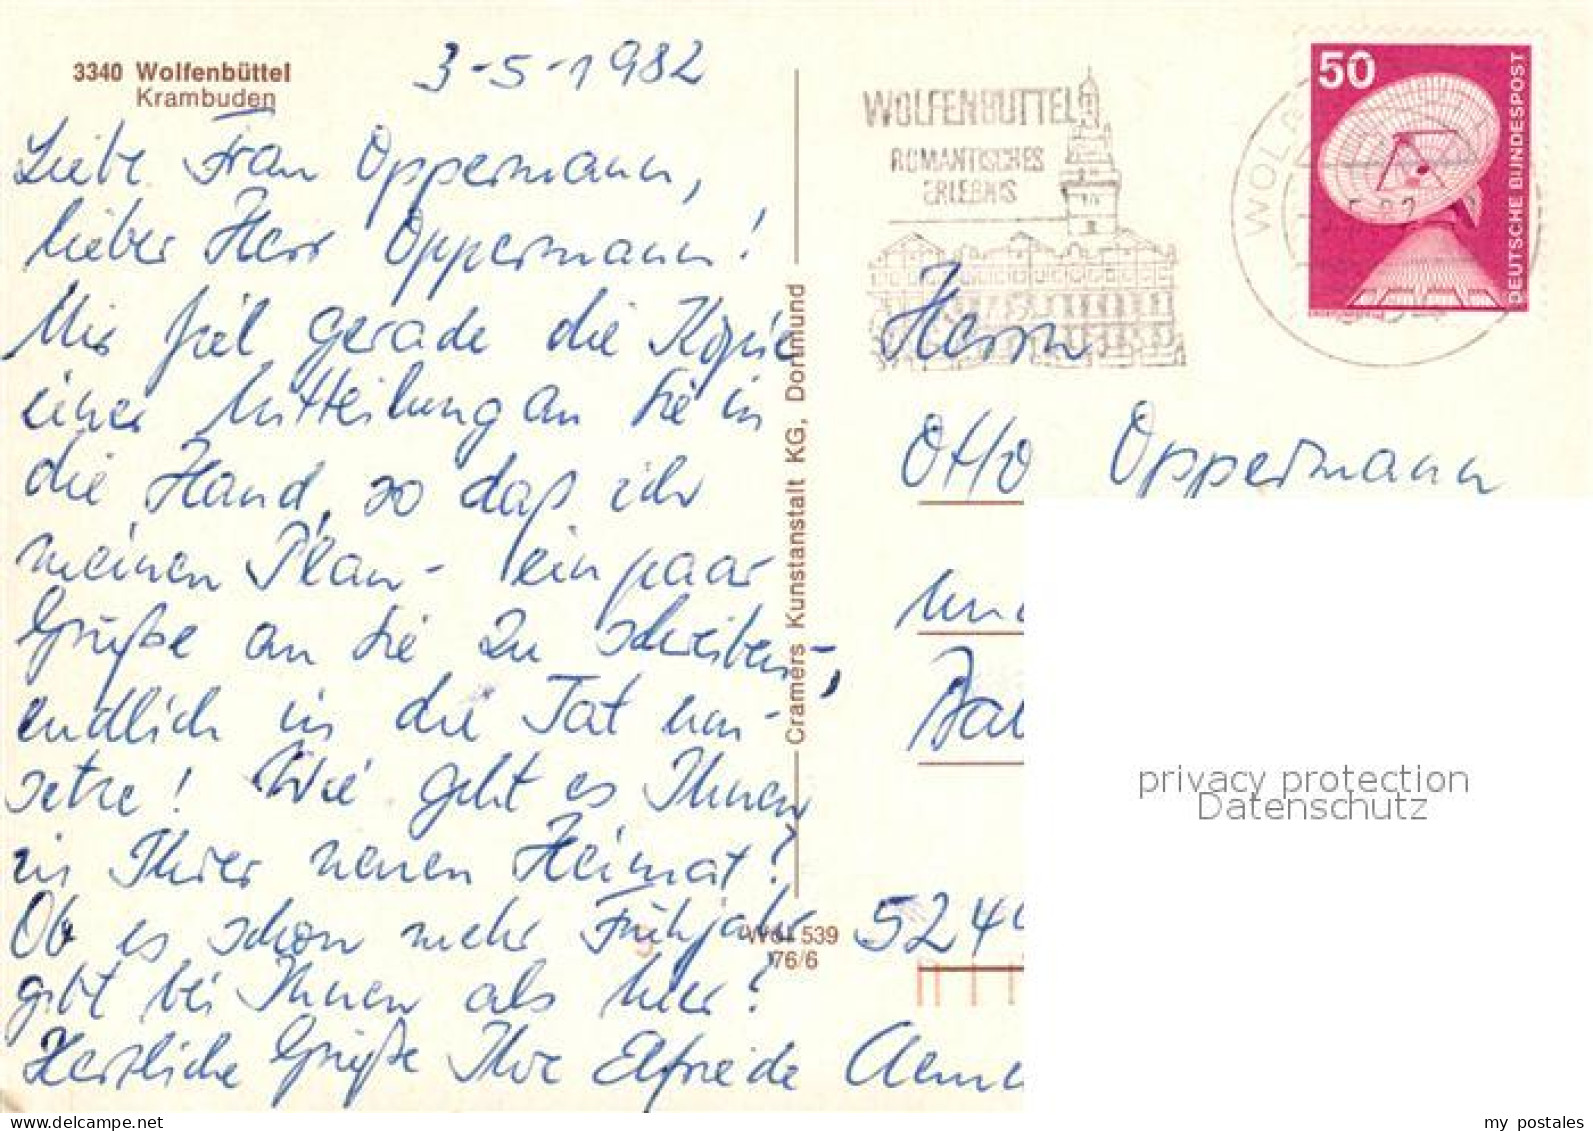 3340 Wolfenbüttel
Krambuden
3-5-1982
Liebe Frau Oppermann,
lieber Herr Oppermann!
Mir fiel gerade die Kopie
einer Mitteilung an Sie in
die Hand, so daß ich
meinen Plan - ein paar
Grüße an Sie zu schreiben -,
endlich in die Tat um-
setze! Wie geht es Ihnen
in Ihrer neuen Heimat?
Ob es schon mehr Frühjahr
gibt bei Ihnen als hier?
Herzliche Grüße Ihre Elfriede
Cramers Kunstanstalt KG, Dortmund
Wol 539
76/6
WOLFENBÜTTEL
ROMANTISCHES
ERLEBNIS
50
DEUTSCHE BUNDESPOST
Herrn
Otto Oppermann
524
privacy protection
Datenschutz
my postales